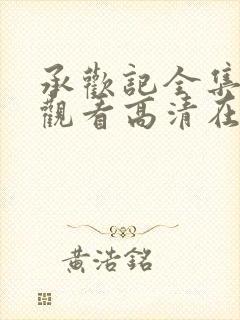 承歡記全集
觀看高清在
黃浩銘